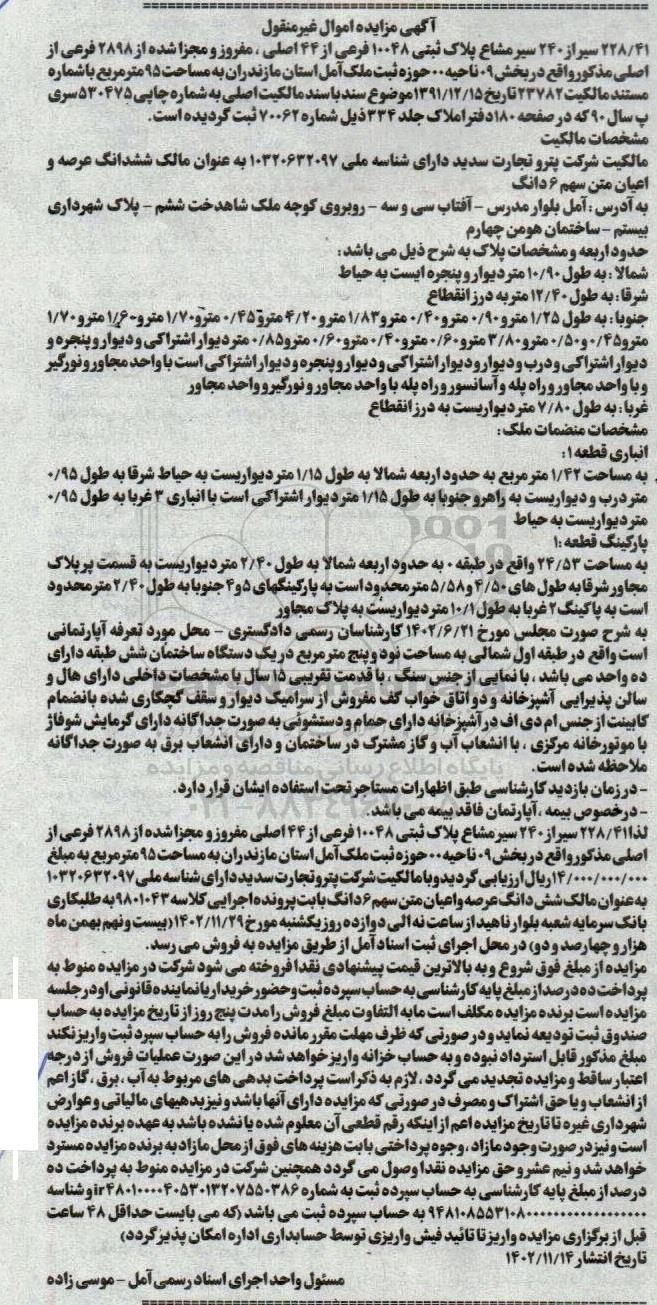 آگهی مزایده اموال غیرمنقول
۲۲۸/۴۱ سیر از ۲۴۰ سیر مشاع پلاک ثبتی ۱۰۰۴۸ فرعی از ۴۴ اصلی ، مفروز و مجزا شده از ۲۸۹۸ فرعی از
اصلی مذکور واقع در بخش ۰۹ ناحیه ۰۰ حوزه ثبت ملک آمل استان مازندران به مساحت ۹۵ مترمربع با شماره
مستند مالکیت ۲۳۷۸۲ تاریخ ۱۳۹۱/۱۲/۱۵ موضوع سند با سند مالکیت اصلی به شماره چاپی ۵۳۰۴۷۵ سری
پ سال ۹۰ که در صفحه ۱۸۰ دفتر املاک جلد ۳۳۴ ذیل شماره ۷۰۰۶۲ ثبت گردیده است.
مشخصات مالکیت
مالکیت شرکت پترو تجارت سدید دارای شناسه ملی ۱۰۳۲۰۶۳۲۰۹۷ به عنوان مالک ششدانگ عرصه و
اعیان متن سهم ۶ دانگ
به آدرس : آمل بلوار مدرس - آفتاب سی و سه - روبروی کوچه ملک شاهدخت ششم - پلاک شهرداری
بیستم - ساختمان هومن چهارم
حدود اربعه و مشخصات پلاک به شرح ذیل می باشد :
شمالا : به طول ۱۰/۹۰ متر دیوار و پنجره ایست به حیاط
شرقا : به طول ۱۲/۴۰ متر به درز انقطاع
جنوبا : به طول ۱/۲۵ متر و ۰/۹۰ متر و ۰/۴۰ متر و ۱/۸۳ متر و ۴/۲۰ متر و ۰/۴۵ متر و ۱/۷۰ متر و ۱/۶۰ متر و ۱/۷۰
متر و ۰/۴۵ و ۰/۵۰ متر و ۳/۸۰ متر و ۰/۶۰ متر و ۰/۴۰ متر و ۰/۶۰ متر و ۰/۸۵ متر دیوار اشتراکی و دیوار و پنجره و
دیوار اشتراکی و درب و دیوار و دیوار اشتراکی و دیوار و پنجره و دیوار اشتراکی است با واحد مجاور و نورگیر
و با واحد مجاور و راه پله و آسانسور و راه پله با واحد مجاور و نورگیر و واحد مجاور
غربا : به طول ۷/۸۰ متر دیواریست به درز انقطاع
مشخصات منضمات ملک :
انباری قطعه ۱:
به مساحت ۱/۴۲ متر مربع به حدود اربعه شمالا به طول ۱/۱۵ متر دیواریست به حیاط شرقا به طول ۰/۹۵
متر درب و دیواریست به راهرو جنوبا به طول ۱/۱۵ متر دیوار اشتراکی است با انباری ۳ غربا به طول ۰/۹۵
متر دیواریست به حیاط
پارکینگ قطعه ۱:
به مساحت ۲۴/۵۳ واقع در طبقه ۰ به حدود اربعه شمالا به طول ۲/۴۰ متر دیواریست به قسمت پر پلاک
مجاور شرقا به طول های ۴/۵۰ و ۵/۵۸ متر محدود است به پارکینگهای ۵ و ۴ جنوبا به طول ۲/۴۰ متر محدود
است به پاکینگ ۲ غربا به طول ۱۰/۱ متر دیواریست به پلاک مجاور
به شرح صورت مجلس مورخ ۱۴۰۲/۶/۲۱ کارشناسان رسمی دادگستری - محل مورد تعرفه آپارتمانی
است واقع در طبقه اول شمالی به مساحت نود و پنج متر مربع در یک دستگاه ساختمان شش طبقه دارای
ده واحد می باشد ، با نمایی از جنس سنگ ، با قدمت تقریبی ۱۵ سال با مشخصات داخلی دارای هال و
سالن پذیرایی آشپزخانه و دو اتاق خواب کف مفروش از سرامیک دیوار و سقف گچکاری شده بانضمام
کابینت از جنس ام دی اف در آشپزخانه دارای حمام و دستشوئی به صورت جداگانه دارای گرمایش شوفاژ
با موتورخانه مرکزی ، با انشعاب آب و گاز مشترک در ساختمان و دارای انشعاب برق به صورت جداگانه
ملاحظه شده است.
- در زمان بازدید کارشناسی طبق اظهارات مستاجر تحت استفاده ایشان قرار دارد.
- درخصوص بیمه ، آپارتمان فاقد بیمه می باشد.
لذا ۲۲۸/۴۱ سیر از ۲۴۰ سیر مشاع پلاک ثبتی ۱۰۰۴۸ فرعی از ۴۴ اصلی مفروز و مجزا شده از ۲۸۹۸ فرعی از
اصلی مذکور واقع در بخش ۰۹ ناحیه ۰۰ حوزه ثبت ملک آمل استان مازندران به مساحت ۹۵ مترمربع به مبلغ
۱۴/۰۰۰/۰۰۰/۰۰۰ ریال ارزیابی گردید و با مالکیت شرکت پترو تجارت سدید دارای شناسه ملی ۱۰۳۲۰۶۳۲۰۹۷
به عنوان مالک شش دانگ عرصه و اعیان متن سهم ۶ دانگ بابت پرونده اجرایی کلاسه ۹۸۰۱۰۴۳ به طلبکاری
بانک سرمایه شعبه بلوار ناهید از ساعت نه الی دوازده روز یکشنبه مورخ ۱۴۰۲/۱۱/۲۹ (بیست و نهم بهمن ماه
هزار و چهارصد و دو) در محل اجرای ثبت اسناد آمل از طریق مزایده به فروش می رسد.
مزایده از مبلغ فوق شروع و به بالاترین قیمت پیشنهادی نقدا فروخته می شود شرکت در مزایده منوط به
پرداخت ده درصد از مبلغ پایه کارشناسی به حساب سپرده ثبت و حضور خریدار یا نماینده قانونی او در جلسه
مزایده است برنده مزایده مکلف است مابه التفاوت مبلغ فروش را مدت پنج روز از تاریخ مزایده به حساب
صندوق ثبت تودیعه نماید و در صورتی که ظرف مهلت مقرر مانده فروش را به حساب سپرد ثبت واریز نکند
مبلغ مذکور قابل استرداد نبوده و به حساب خزانه واریز خواهد شد در این صورت عملیات فروش از درجه
اعتبار ساقط و مزایده تجدید می گردد ، لازم به ذکر است پرداخت بدهی های مربوط به آب ، برق ، گاز اعم
از انشعاب و یا حق اشتراک و مصرف در صورتی که مزایده دارای آنها باشد و نیز بدهیهای مالیاتی و عوارض
شهرداری غیره تا تاریخ مزایده اعم از اینکه رقم قطعی آن معلوم شده یا نشده باشد به عهده برنده مزایده
است و نیز در صورت وجود مازاد ، وجوه پرداختی بابت هزینه های فوق از محل مازاد به برنده مزایده مسترد
خواهد شد و نیم عشر و حق مزایده نقدا وصول می گردد همچنین شرکت در مزایده منوط به پرداخت ده
درصد از مبلغ پایه کارشناسی به حساب سپرده ثبت به شماره ir۴۸۰۱۰۰۰۰۴۰۵۳۰۱۳۲۰۷۵۵۰۳۸۶ و شناسه
به حساب سپرده ثبت می باشد (که می بایست حداقل ۴۸ ساعت
قبل از برگزاری مزایده واریز تا تائید فیش واریزی توسط حسابداری اداره امکان پذیز گردد)
تاریخ انتشار ۱۴۰۲/۱۱/۱۴
مسئول واحد اجرای اسناد رسمی آمل - موسی زاده
پایگاه اطلاع رسانی مناقصه و مزایده